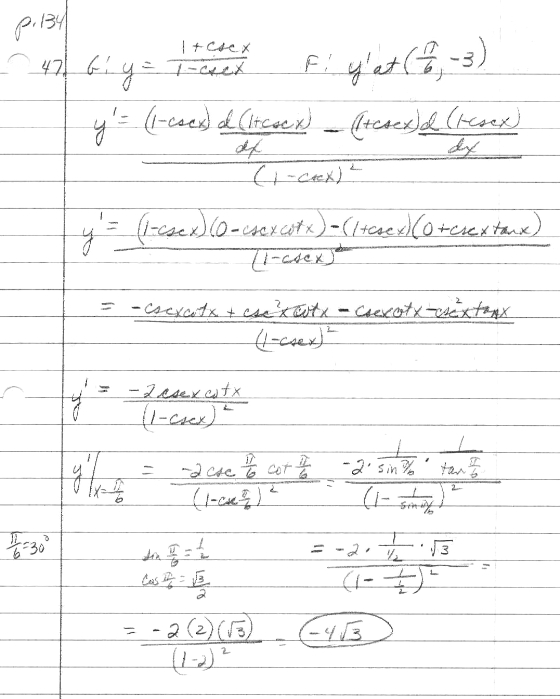 p.134
47. G: y = (1+cscx)/(1-cscx) F: y' at (π/6, -3)
y' = ((1-cscx) d(1+cscx)/dx - (1+cscx) d(1-cscx)/dx)/(1-cscx)²
y' = ((1-cscx)(0-cscxcotx)-(1+cscx)(0+cscxtanx))/(1-cscx)²
= (-cscxcotx + csc²xcotx - cscxcotx-csc²xtanx)/(1-cscx)²
y' = (-2cscxcotx)/(1-cscx)²
y'|x=π/6 = (-2csc π/6 cot π/6)/(1-csc π/6)² = (-2· 1/sin π/6 · 1/tan π/6)/(1- 1/sin π/6)²
π/6=30° sin π/6 = 1/2 = (-2 · 1/(1/2) · √3)/(1- 1/(1/2))² =
cos π/6 = √3/2
= (-2(2)(√3))/(1-2)² = -4√3